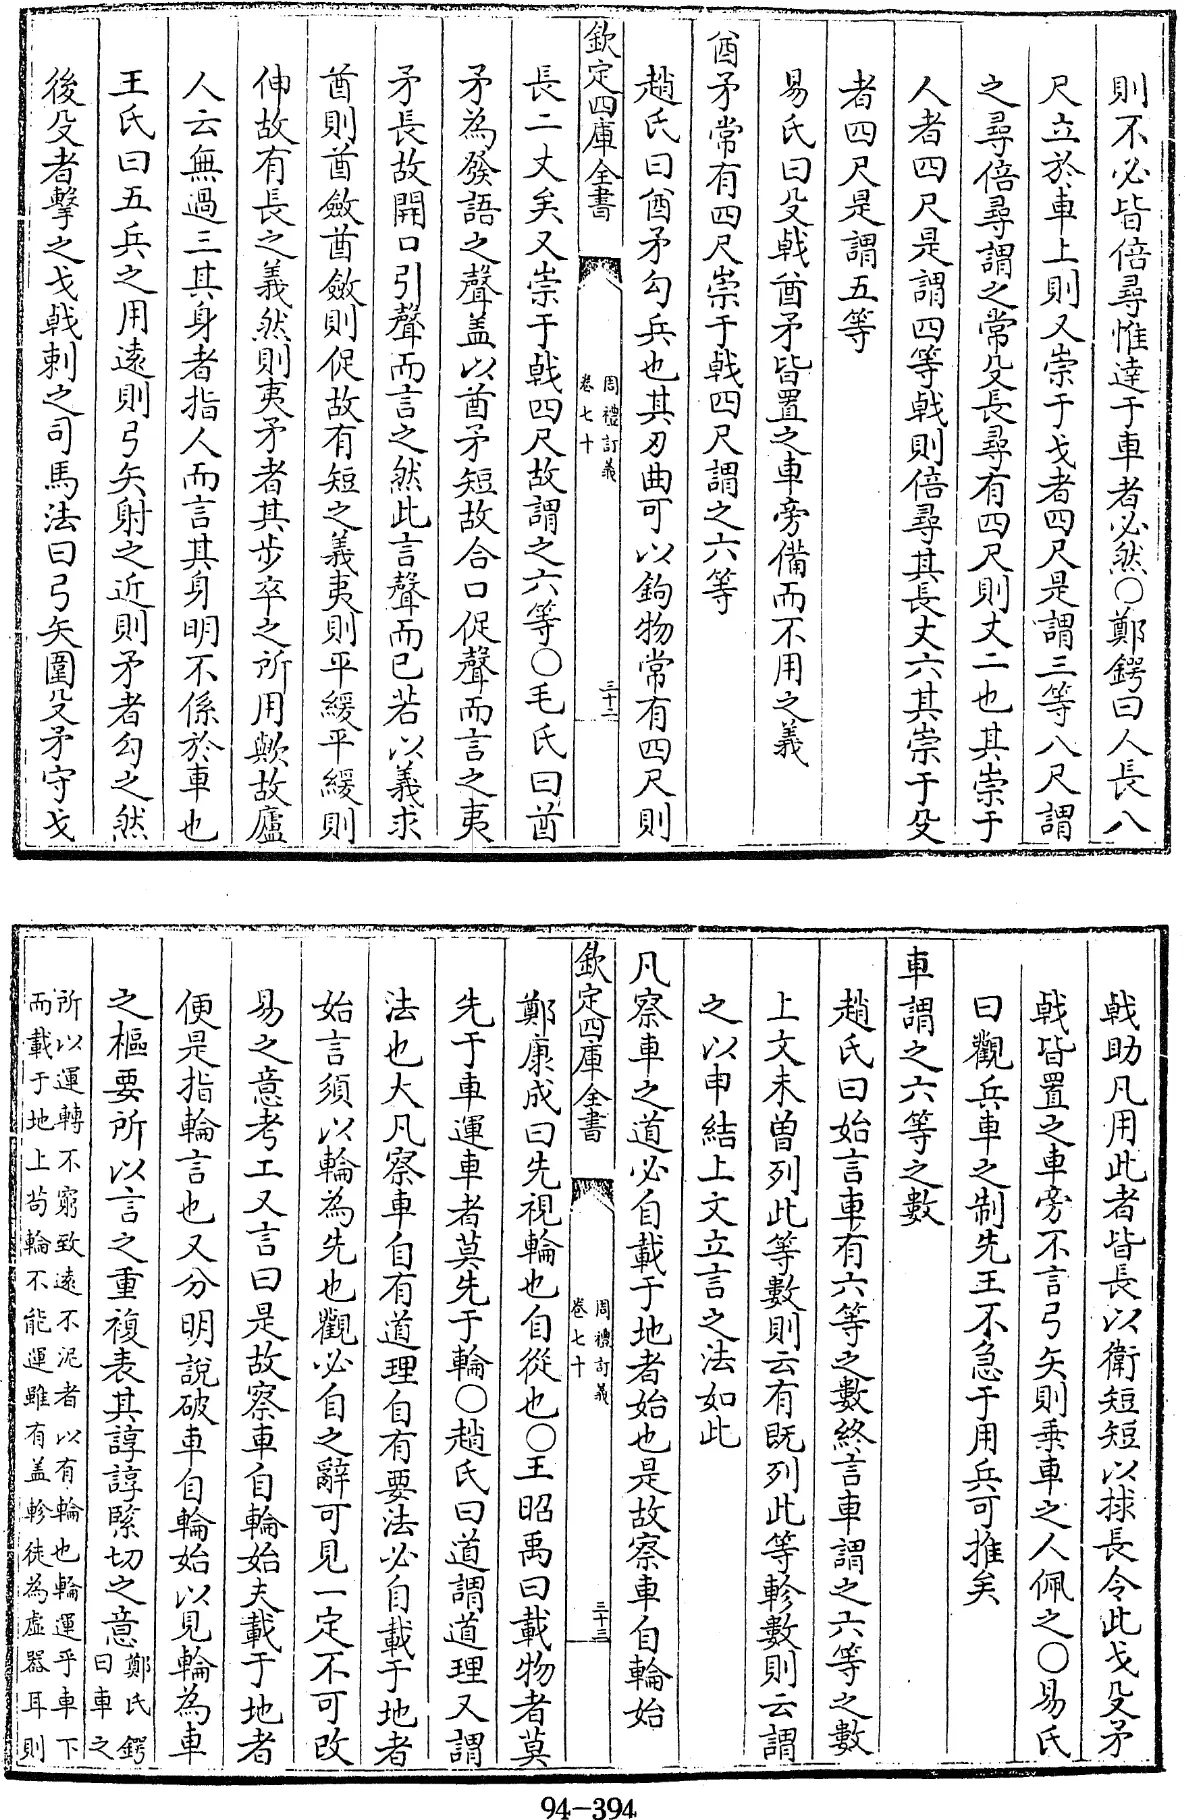 則不必皆倍尋惟達于車者必然○鄭鍔曰人長八
尺立於車上則又崇于戈者四尺是謂三等八尺謂
之尋倍尋謂之常殳長尋有四尺則丈二也其崇于
人者四尺是謂四等戟則倍尋其長丈六其崇于殳
者四尺是謂五等
易氏曰殳戟酋矛皆置之車旁備而不用之義
酋矛常有四尺崇于戟四尺謂之六等
趙氏曰酋矛勾兵也其刃曲可以鉤物常有四尺則
欽定四庫全書
周禮訂義
卷七十
三十二
長二丈矣又崇于戟四尺故謂之六等○毛氏曰酋
矛為發語之聲盖以酋矛短故合口促聲而言之夷
矛長故開口引聲而言之然此言聲而已若以義求
酋則酋斂酋斂則促故有短之義夷則平緩平緩則
伸故有長之義然則夷矛者其步卒之所用歟故廬
人云無過三其身者指人而言其身明不係於車也
王氏曰五兵之用遠則弓矢射之近則矛者勾之然
後殳者擊之戈戟刺之司馬法曰弓矢圍殳矛守戈
戟助凡用此者皆長以衛短短以捄長令此戈殳矛
戟皆置之車旁不言弓矢則乗車之人佩之○易氏
曰觀兵車之制先王不急于用兵可推矣
車謂之六等之數
趙氏曰始言車有六等之數終言車謂之六等之數
上文未曽列此等數則云有既列此等軫數則云謂
之以申結上文立言之法如此
凡察車之道必自載于地者始也是故察車自輪始
欽定四庫全書
周禮訂義
卷七十
三十三
鄭康成曰先視輪也自從也○王昭禹曰載物者莫
先于車運車者莫先于輪○趙氏曰道謂道理又謂
法也大凡察車自有道理自有要法必自載于地者
始言須以輪為先也觀必自之辭可見一定不可改
易之意考工又言曰是故察車自輪始夫載于地者
便是指輪言也又分明說破車自輪始以見輪為車
之樞要所以言之重複表其諄諄緊切之意鄭氏鍔
曰車之
所以運轉不窮致遠不泥者以有輪也輪運乎車下
而載于地上茍輪不能運雖有盖軫徒為虛器耳則
94-394